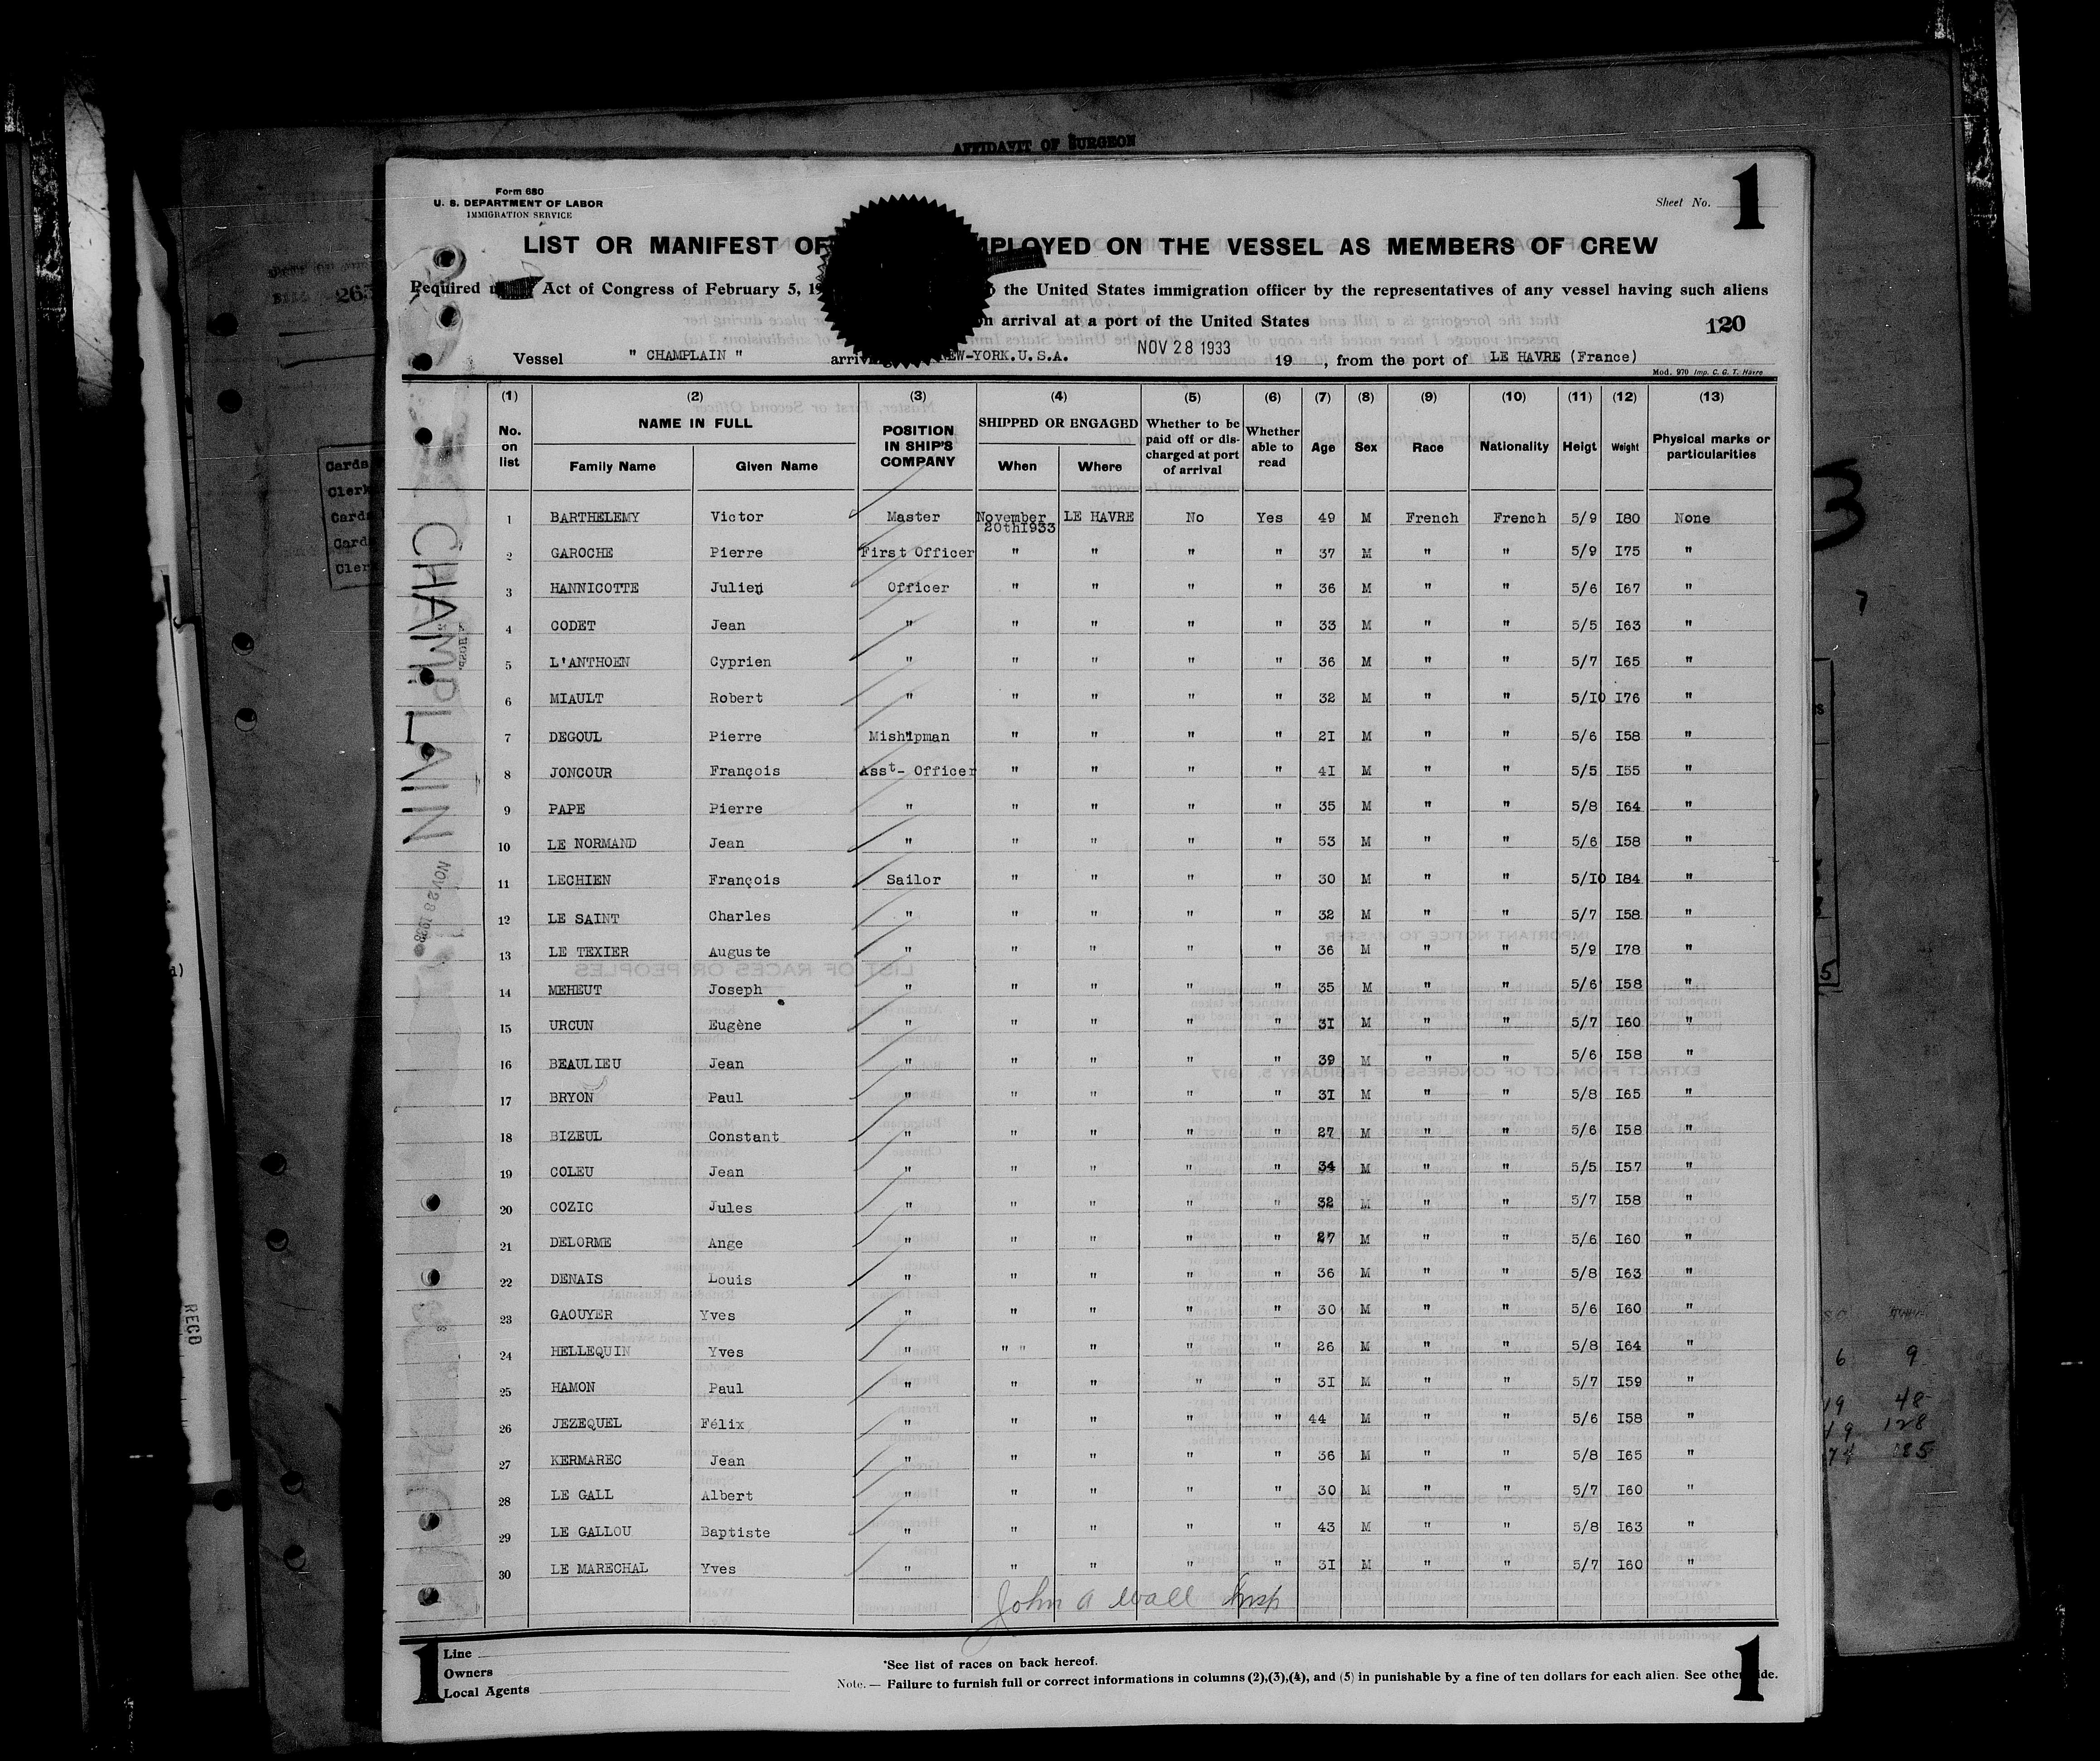 AFFIDAVIT OF SURGEON
Form 680
U. S. DEPARTMENT OF LABOR
IMMIGRATION SERVICE
Sheet No. 1
LIST OR MANIFEST OF EMPLOYED ON THE VESSEL AS MEMBERS OF CREW
Required Act of Congress of February 5, 19 the United States immigration officer by the representatives of any vessel having such aliens
on arrival at a port of the United States
120
Vessel " CHAMPLAIN " arriving NEW-YORK.U.S.A. NOV 28 1933 19 , from the port of LE HAVRE (France)
Mod. 970 Imp. C. G. T. Havre
(1) (2) (3) (4) (5) (6) (7) (8) (9) (10) (11) (12) (13)
No. on list NAME IN FULL Family Name Given Name POSITION IN SHIP'S COMPANY SHIPPED OR ENGAGED When Where Whether to be paid off or discharged at port of arrival Whether able to read Age Sex Race Nationality Heigt Weight Physical marks or particularities
1 BARTHELEMY Victor Master November 20th1933 LE HAVRE No Yes 49 M French French 5/9 I80 None
2 GAROCHE Pierre First Officer " " " " 37 M " " 5/9 I75 "
3 HANNICOTTE Julien Officer " " " " 36 M " " 5/6 I67 "
4 CODET Jean " " " " " 33 M " " 5/5 I63 "
5 L'ANTHOEN Cyprien " " " " " 36 M " " 5/7 I65 "
6 MIAULT Robert " " " " " 32 M " " 5/I0 I76 "
7 DEGOUL Pierre Mishipman " " " " 2I M " " 5/6 I58 "
8 JONCOUR François Asst- Officer " " " " 4I M " " 5/5 I55 "
9 PAPE Pierre " " " " " 35 M " " 5/8 I64 "
10 LE NORMAND Jean " " " " " 53 M " " 5/6 I58 "
11 LECHIEN François Sailor " " " " 30 M " " 5/I0 I84 "
12 LE SAINT Charles " " " " " 32 M " " 5/7 I58 "
13 LE TEXIER Auguste " " " " " 36 M " " 5/9 I78 "
14 MEHEUT Joseph " " " " " 35 M " " 5/6 I58 "
15 URCUN Eugène " " " " " 3I M " " 5/7 I60 "
16 BEAULIEU Jean " " " " " 39 M " " 5/6 I58 "
17 BRYON Paul " " " " " 3I M " " 5/8 I65 "
18 BIZEUL Constant " " " " " 27 M " " 5/6 I58 "
19 COLEU Jean " " " " " 34 M " " 5/5 I57 "
20 COZIC Jules " " " " " 32 M " " 5/7 I58 "
21 DELORME Ange " " " " " 27 M " " 5/6 I60 "
22 DENAIS Louis " " " " " 36 M " " 5/8 I63 "
23 GAOUYER Yves " " " " " 30 M " " 5/6 I60 "
24 HELLEQUIN Yves " " " " " " 26 M " " 5/8 I64 "
25 HAMON Paul " " " " " 3I M " " 5/7 I59 "
26 JEZEQUEL Félix " " " " " 44 M " " 5/6 I58 "
27 KERMAREC Jean " " " " " 36 M " " 5/8 I65 "
28 LE GALL Albert " " " " " 30 M " " 5/7 I60 "
29 LE GALLOU Baptiste " " " " " 43 M " " 5/8 I63 "
30 LE MARECHAL Yves " " " " " 3I M " " 5/7 I60 "
John A Wall Insp
1 Line
Owners
Local Agents
*See list of races on back hereof.
Note. — Failure to furnish full or correct informations in columns (2),(3),(4), and (5) in punishable by a fine of ten dollars for each alien. See other side.
1
CHAMPLAIN
NOV 28 1933
RECD
Cards
Cards
6 9
19 48
128